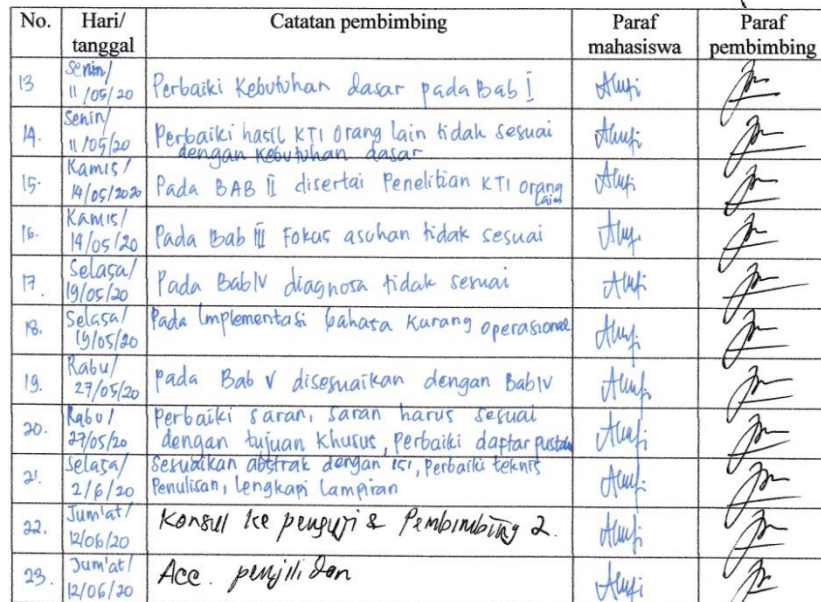 No. Hari/ tanggal Catatan pembimbing Paraf mahasiswa Paraf pembimbing
13 Senin/ 11/05/20 Perbaiki Kebutuhan dasar pada Bab I
14. Senin/ 11/05/20 Perbaiki hasil KTI orang lain tidak sesuai
dengan kebutuhan dasar
15. Kamis/ 14/05/2020 Pada BAB II disertai Penelitian KTI orang
lain
16. Kamis/ 14/05/20 Pada Bab III Fokus asuhan tidak sesuai
17. Selasa/ 19/05/20 Pada Bab IV diagnosa tidak sesuai
18. Selasa/ 19/05/20 Pada Implementasi bahasa kurang operasional
19. Rabu/ 27/05/20 Pada Bab V disesuaikan dengan Bab IV
20. Rabu/ 27/05/20 Perbaiki saran, saran harus sesuai
dengan tujuan khusus, Perbaiki daftar pustaka
21. Selasa/ 2/6/20 Sesuaikan abstrak dengan isi, Perbaiki teknis
Penulisan, lengkapi lampiran
22. Jum'at/ 12/06/20 Konsul ke penguji & Pembimbing 2.
23. Jum'at/ 12/06/20 Acc. penjilidan